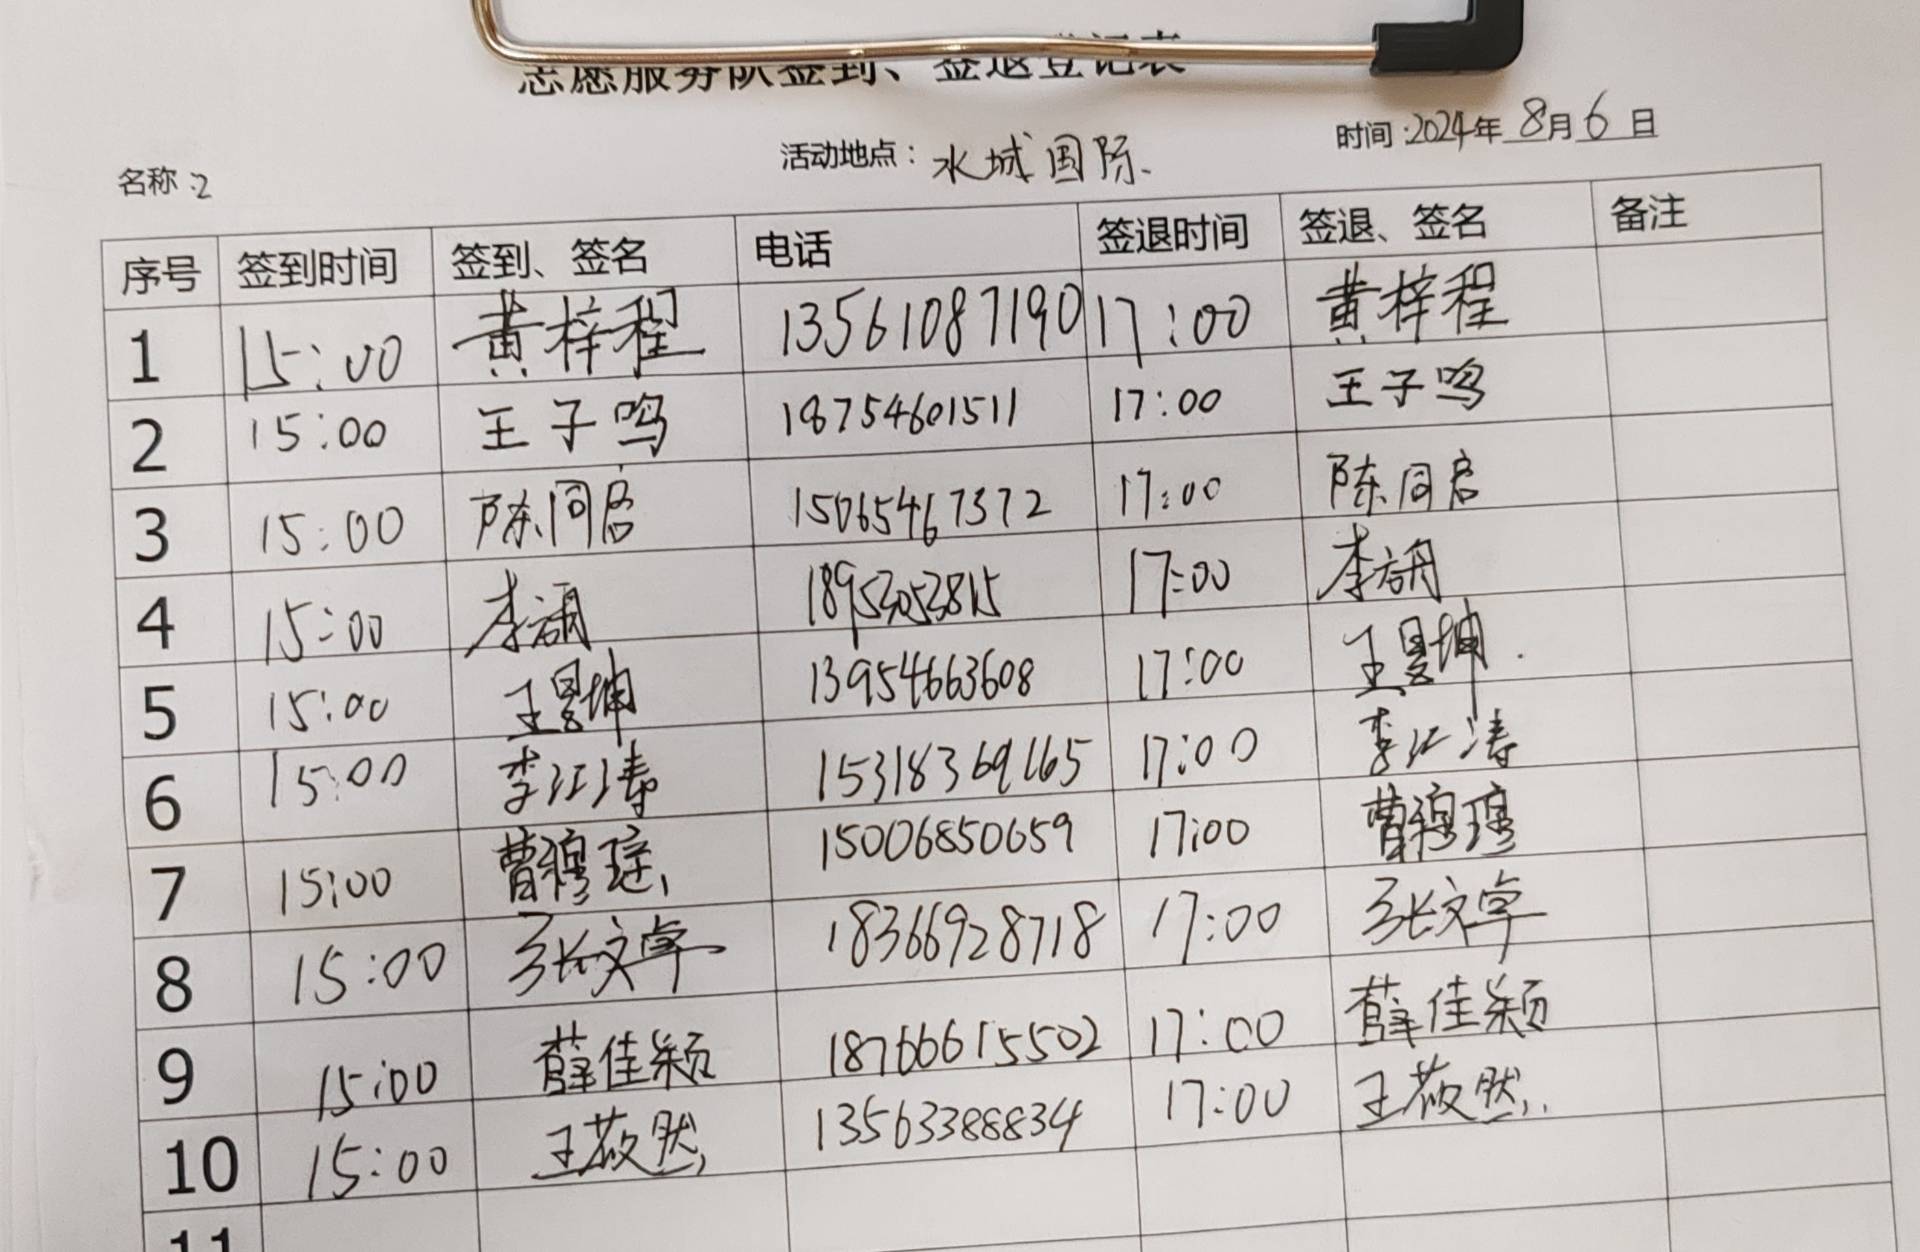 志愿服务队签到、签退登记表
名称:2 活动地点：水城国际. 时间:2024年 8月6日
序号 签到时间 签到、签名 电话 签退时间 签退、签名 备注
1 15:00 黄梓程 13561087190 17:00 黄梓程
2 15:00 王子鸣 18754601511 17:00 王子鸣
3 15:00 陈同启 15065467372 17:00 陈同启
4 15:00 李 18953053815 17:00 李
5 15:00 王昱坤 13954663608 17:00 王昱坤
6 15:00 李江涛 15318369165 17:00 李江涛
7 15:00 曹穆瑾 15006850659 17:00 曹穆瑾
8 15:00 张文卓 18366928718 17:00 张文卓
9 15:00 薛佳颖 18766615502 17:00 薛佳颖
10 15:00 王筱然 13563388834 17:00 王筱然
11